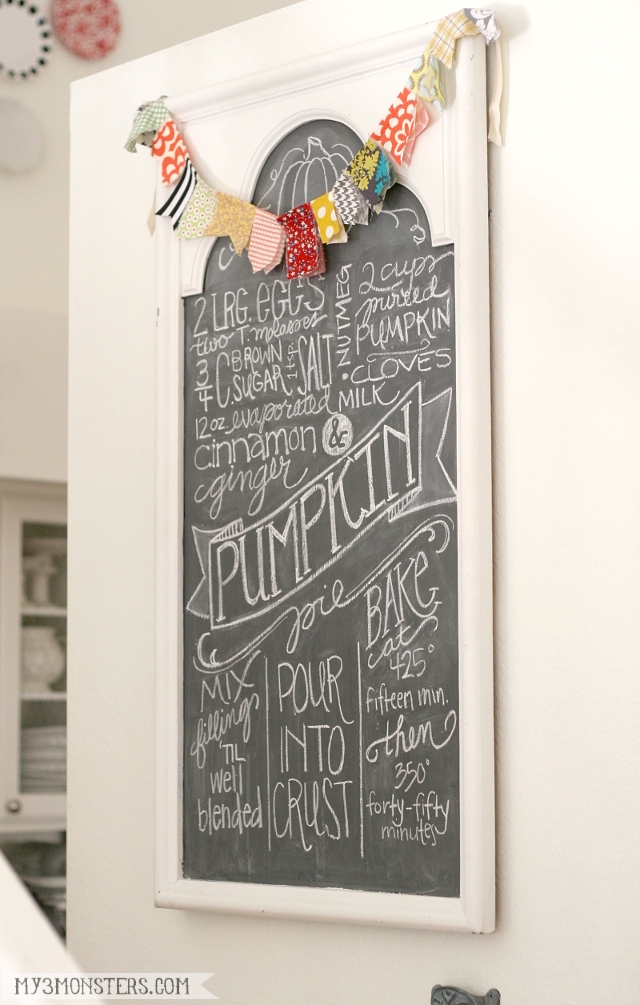 2 LRG. EGGS
two T. molasses
3/4 C. BROWN SUGAR
1 tsp SALT
NUTMEG
2 cups
pureed
PUMPKIN
• CLOVES
12 oz. evaporated MILK
cinnamon &
ginger
PUMPKIN
pie
MIX
fillings
'TIL
well
blended
POUR
INTO
CRUST
BAKE
at
425°
fifteen min.
then
350°
forty-fifty
minutes
MY3MONSTERS.COM